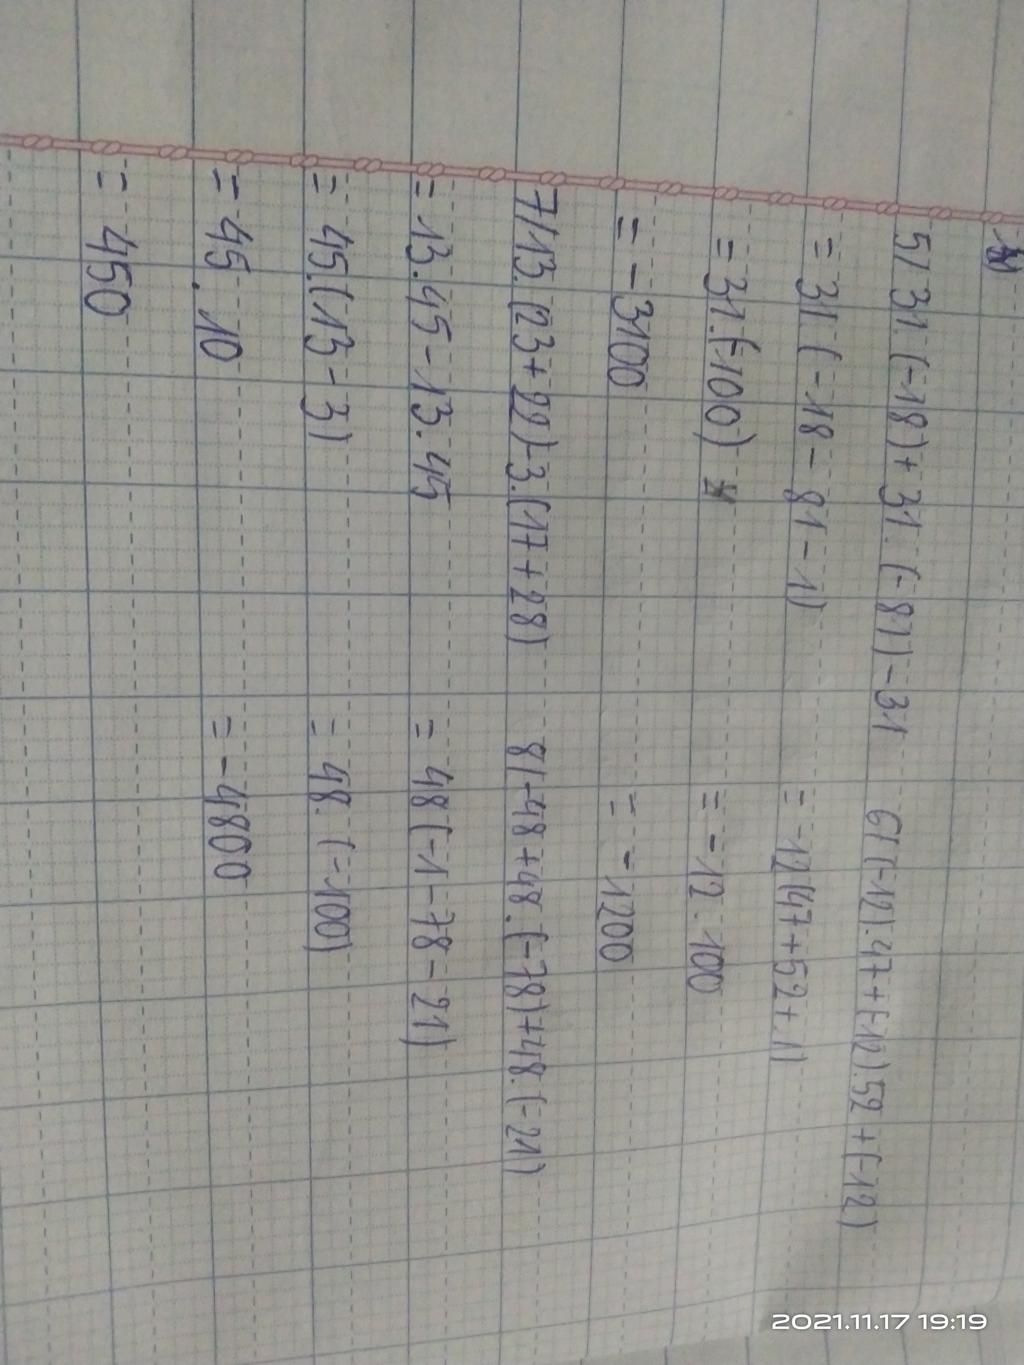 5/ 31.(-18)+31.(-81)-31
= 31(-18-81-1)
= 31.(-100)
= -3100
6/(-12).47+(-12).52+(-12)
= -12(47+52+1)
= -12.100
= -1200
7/13.(23+22)-3.(17+28)
= 13.45-13.45
= 45.(13-3)
= 45.10
= 450
8/-48+48.(-78)+48.(-21)
= 48(-1-78-21)
= 48.(-100)
= -4800
2021.11.17 19:19